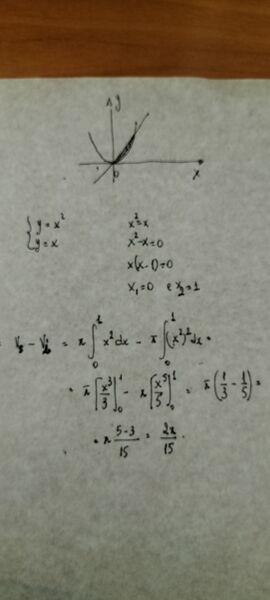 y
0
x
{ y = x²
x² = x
{ y = x
x² - x = 0
x(x - 1) = 0
x₁ = 0 e x₂ = 1
= V₁ - V₂ = π ∫₀¹ x² dx - π ∫₀¹ (x²)² dx =
= π [x³/3]₀¹ - π [x⁵/5]₀¹ = π (1/3 - 1/5) =
= π (5-3)/15 = 2π/15.